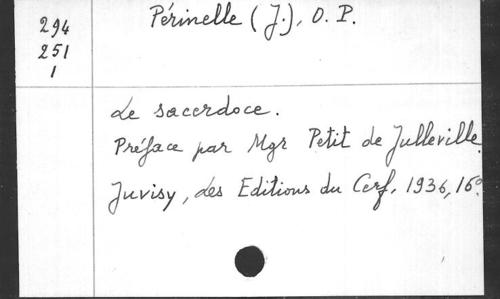 294
251
1
Périnelle (J.), O. P.
Le sacerdoce.
Préface par Mgr Petit de Julleville.
Juvisy, Les Editions du Cerf, 1936, 16°.